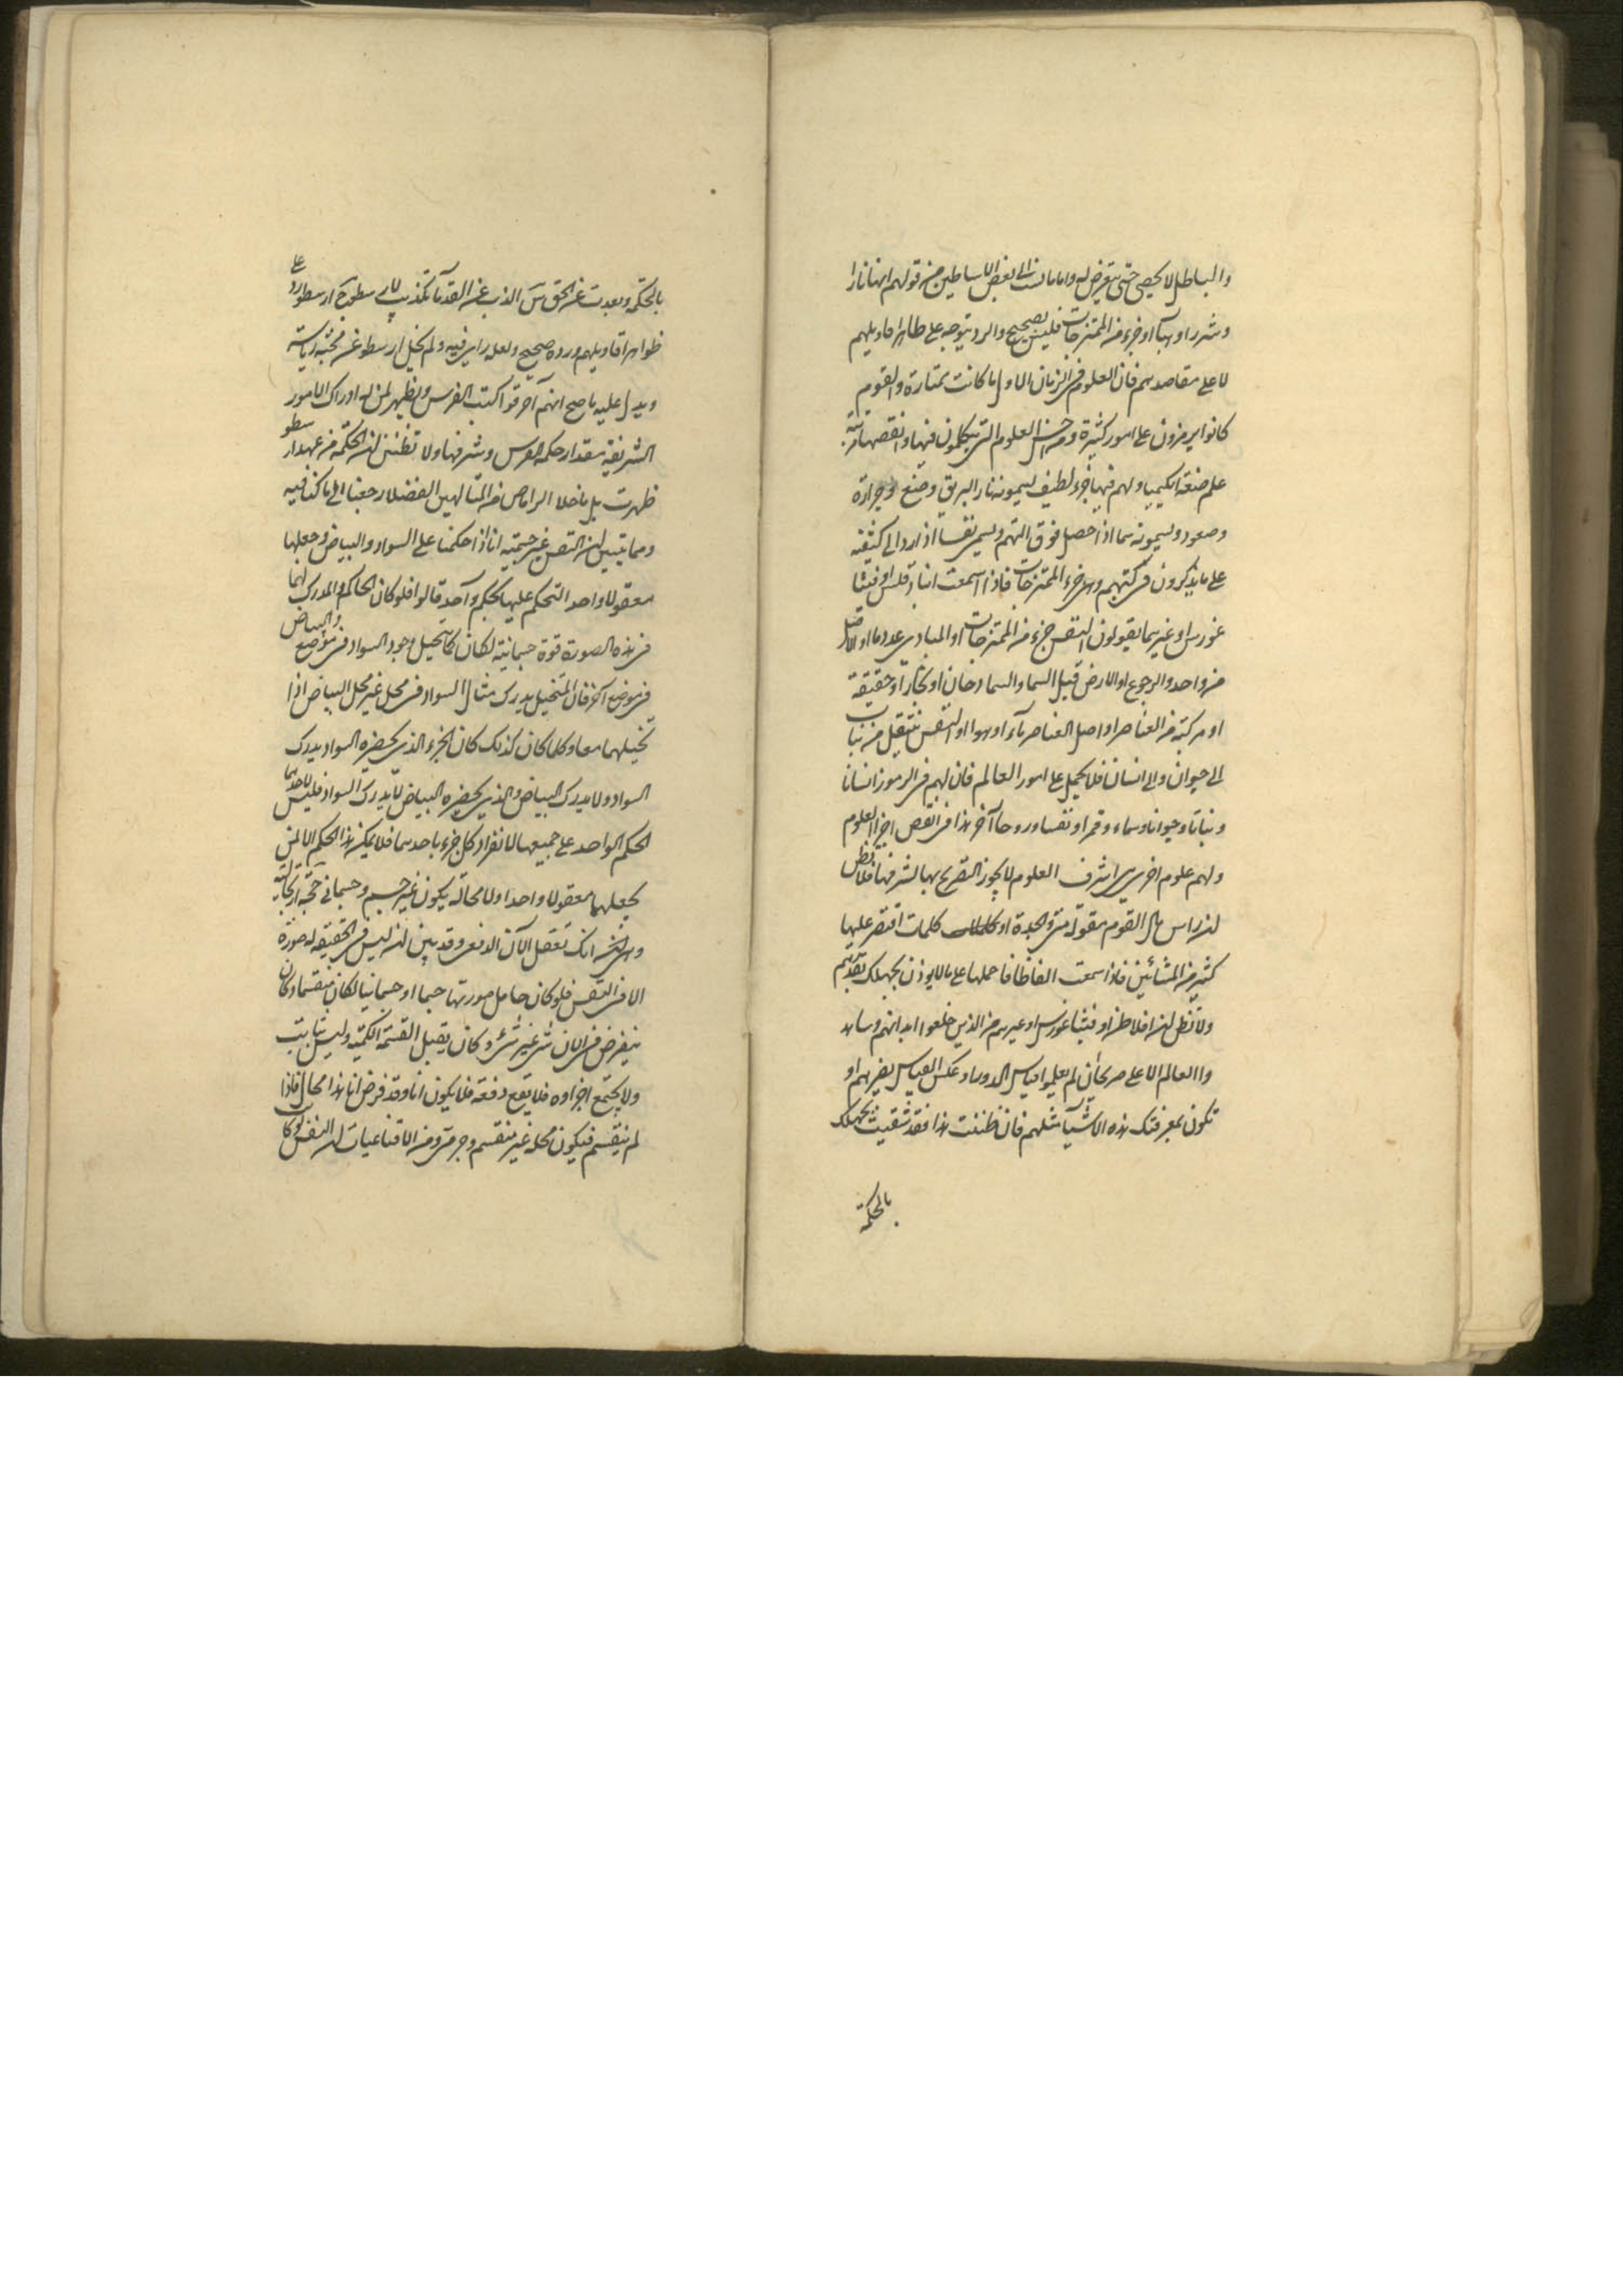 والباطل لا يحصى حتى يتعرض له واما ما نسب الى بعض الاساطين من قولهم انها نارا
وشررا وهباء او جزء من الممتزجات فليس بصحيح والرد يتوجه على ظاهر اقاويلهم
لا على مقاصدهم فان العلوم فى الزمان الاول ما كانت ممتازة والقوم
كانوا يرمزون على امور كثيرة ومن اخس العلوم التى يتكلمون فيها وانقصها مرتبة
علم صنعة الكيميا ولهم فيها جزء لطيف يسمونه نار البريق وحرارة
وصعود ويسمونه سما اذا حصل فوق ويسمى نفسا اذا رد الى كثيفته
على ما يذكرون فى كتبهم وهى جزء الممتزجات فاذا سمعت انباذقلس او فيثا
غورس او غيرهما يقولون النفس جزء من الممتزجات او المبادى عدد ما او الاصل
من واحد والرجوع او الارض قبل السما والسما دخان او بخار او حقيقة
او مركبة من العناصر او اصل العناصر ماء او هوا او النفس تنتقل من نبات
الى حيوان والى انسان فلا يحمل على امور العالم فان لهم فى الرموز انسانا
ونباتا وحيوانا وسماء وقمرا ونفسا وروحا آخر هذا فى انقص اجزا العلوم
ولهم علوم اخرى هى اشرف العلوم لا يجوز التصريح بها لشرفها فلا تظن
ان راس مال القوم مقولة متى والجدة او كلمات اقتصر عليها
كثير من المشائين فاذا سمعت الفاظا فاحملها على ما لا يوذن بجهلك بقدرهم
ولا تظن ان افلاطن او فيثاغورس او غيرهم من الذين خلعوا ابدانهم
والعالم الاعلى صريحا لم يعلموا قياس الدور او عكس القياس بغيرهم او
تكون بمعرفتك هذه الاشيا مثلهم فان ظننت هذا فقد شقيت بجهلك
بالحكمة
بالحكمة وبعدت عن الحق الذب عن القدما تكذيب لارسطو ارسطو رد على
ظواهر اقاويلهم ورده صحيح ولعله راى فيه ولم يخل ارسطو عن محبة رياسة
ويدل عليه ما صح انهم احرقوا كتب الفرس ويظهر لمن له ادراك الامور
الشريفة مقدار حكمة الفرس وشرفها ولا تظنن ان الحكمة من عهد ارسطو
ظهرت بل ما خلا من المتالهين الفضلا رجعنا الى ما كنا فيه
ومما يتبين ان النفس غير جسمية انا اذا حكمنا على السواد والبياض وجعلها
معقولا واحدا التحكم عليها بحكم واحد قالوا فلو كان الحاكم والمدرك لهما
فى هذه الصورة قوة جسمانية لكان كما تخيل وجود السواد فى موضع والبياض
فى موضع آخر فان المتخيل يدرك مثال السواد فى محل غير محل البياض اذا
تخيلهما معا وكلما كان كذلك كان الجزء الذى يحضره السواد يدرك
السواد ولا يدرك البياض والذى يحضره البياض لا يدرك السواد فليس لاحدهما
الحكم الواحد على جميعهما لانفراد كل جزء باحدهما فلا يمكن هذا الحكم الا لمن
يجعلهما معقولا واحدا ولا محالة يكون غير جسم وجسمانى حجة ارتجالية
وهى انك تعقل الآن الدفعى وقد بين ان ليس فى الحقيقة له صورة
الا فى النفس فلو كان حامل صورتها جسما او جسمانيا لكان منقسما وكان
ينفرض فى الآن شى غير شى وكان يقبل القسمة الكمية وليس بثابت
ولا يجتمع اجزاوه فلا يقع دفعة فلا يكون آنا وقد فرض آنا هذا محال فاذا
لم ينقسم فيكون محله غير منقسم وجرمى ومن الاقناعيات ان النفس لو كا